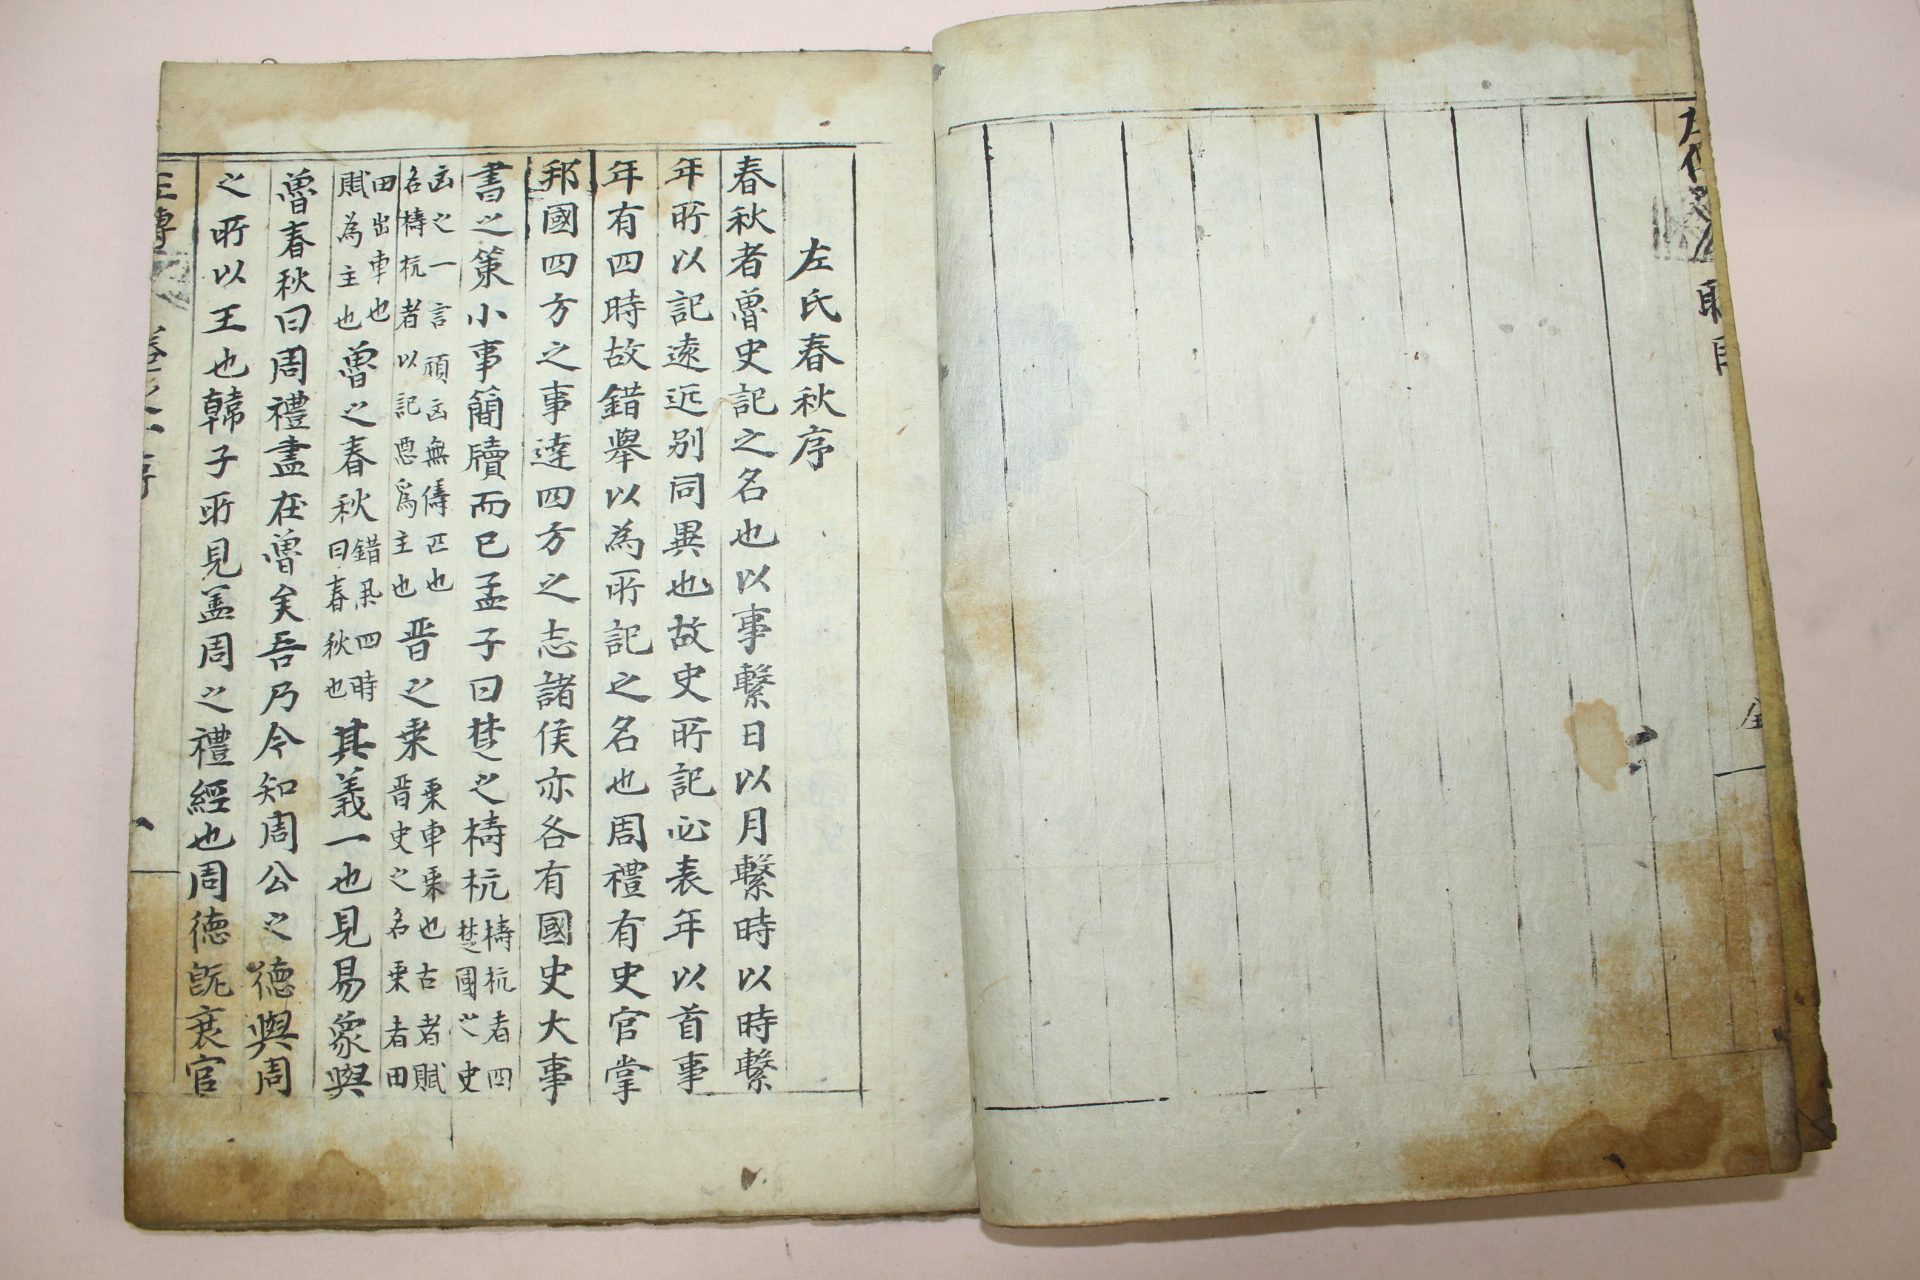 左氏春秋序
春秋者魯史記之名也以事繫日以月繫時以時繫
年所以記遠近別同異也故史所記必表年以首事
年有四時故錯舉以為所記之名也周禮有史官掌
邦國四方之事達四方之志諸侯亦各有國史大事
書之策小事簡牘而已孟子曰楚之檮杌檮杌者四楚國之史
凶之一言頑凶無儔匹也名檮杌者以記惡爲主也晋之乗乗車乗也古者賦晋史之名乗者田
田出車也賦為主也魯之春秋錯舉四時曰春秋也其義一也見易象與
魯春秋曰周禮盡在魯矣吾乃今知周公之德與周
之所以王也韓子所見盖周之禮經也周德旣衰官
左傳 卷之一 序